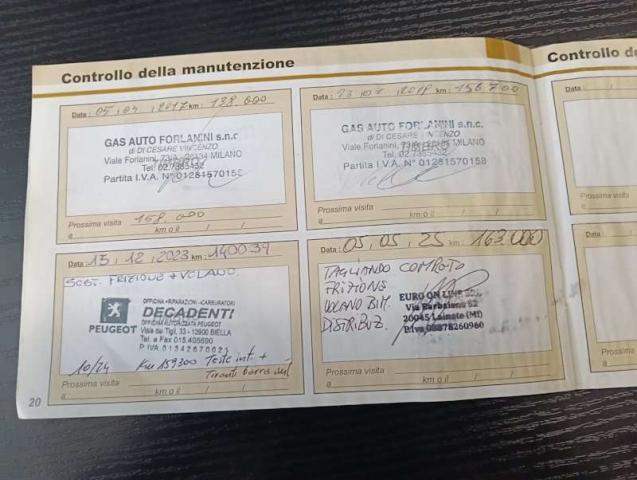 Controllo della manutenzione
Controllo de
Data: 05, 04, 2017 km: 138.000
GAS AUTO FORLANINI s.n.c.
di DI CESARE VINCENZO
Viale Forlanini, MILANO
Tel. 02.7385432
Partita I.V.A. N° 01281570158
Prossima visita 158.000
a km o il / /
Data: km: 156.700
GAS AUTO FORLANINI s.n.c.
di DI CESARE VINCENZO
Viale Forlanini, MILANO
Tel. 02.7385432
Partita I.V.A. N° 01281570158
Prossima visita
a km o il / /
Data
Prossima
a
Data: 15, 12, 2023 km: 140039
SOST. FRIZIONE + VOLANO.
OFFICINA •RIPARAZIONI •CARBURATORI
DECADENTI!
PEUGEOT
OFFICINA AUTORIZZATA PEUGEOT
Viale dei Tigli, 33 - 13900 BIELLA
Tel. e Fax 015.405690
P. IVA 01542670021
10/24 Km 159300 Teste inti. +
Tiranti barra
Prossima visita
a km o il / /
Data: 05, 05, 25 km: 163.000
TAGLIANDO
FRIZIONE
VOLANO BIM.
DISTRIBUZ.
EURO ON LINE
Via Barbaiana 52
20045 Lainate (MI)
P.Iva 08878260960
Prossima visita
a km o il / /
Data:
Prossima
a
20